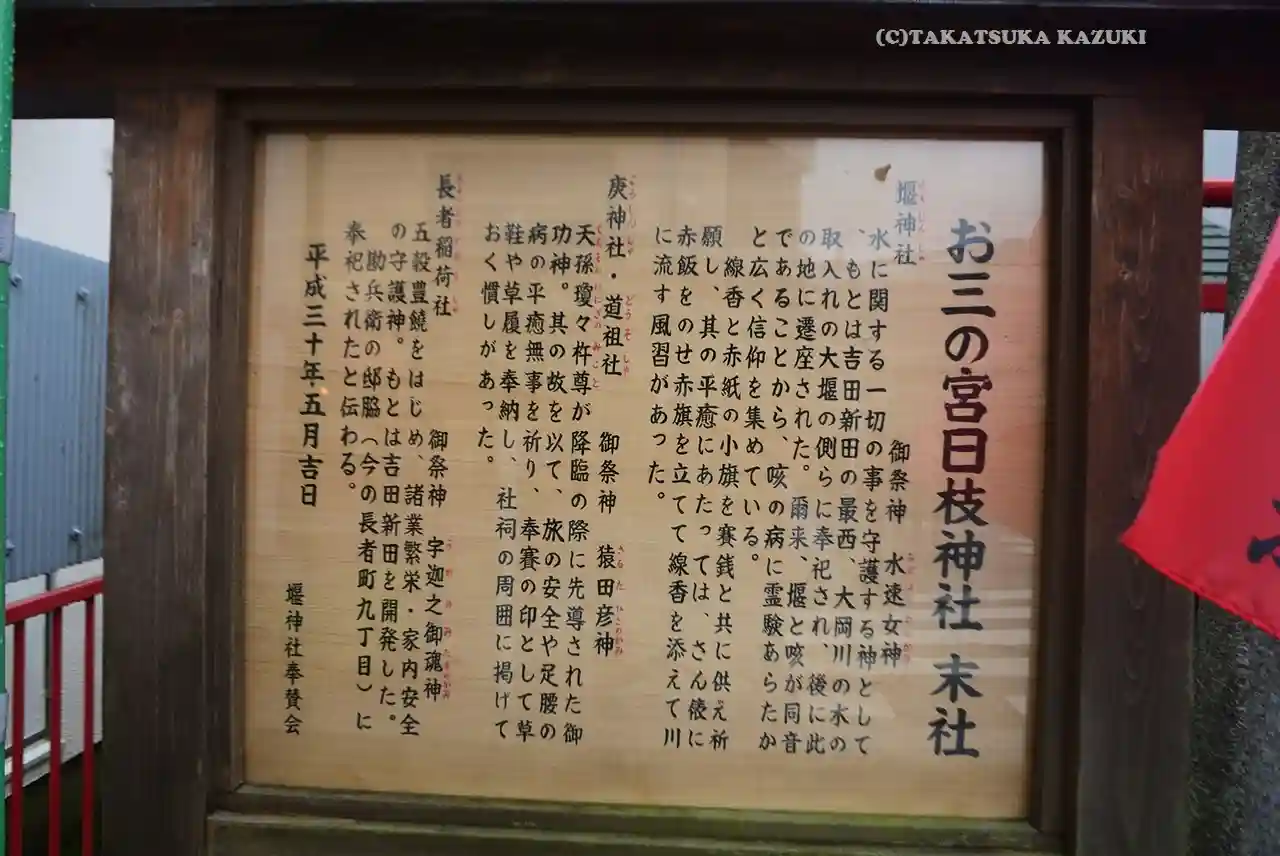 (C)TAKATSUKA KAZUKI
お三の宮日枝神社 末社
堰神社 御祭神 水速女神
水に関する一切の事を守護する神として
、もとは吉田新田の最西、大岡川の水の
取入れの大堰の側らに奉祀され、後に此
の地に遷座された。爾来、堰と咳が同音
であることから、咳の病に霊験あらたか
と広く信仰を集めている。
線香と赤紙の小旗を賽銭と共に供え祈
願し、其の平癒にあたっては、さん俵に
赤飯をのせ赤旗を立てて線香を添えて川
に流す風習があった。
庚神社・道祖社 御祭神 猿田彦神
どうそしゃ
さるたひこのかみ
天孫瓊々杵尊が降臨の際に先導された御
てんそんににぎのみこと
功神。其の故を以て、旅の安全や足腰の
病の平癒無事を祈り、奉賽の印として草
鞋や草履を奉納し、社祠の周囲に掲げて
おく慣しがあった。
長者稲荷社 御祭神 宇迦之御魂神
うかのみたまのかみ
五穀豊饒をはじめ、諸業繁栄・家内安全
の守護神。もとは吉田新田を開発した。
勘兵衛の邸脇（今の長者町九丁目）に
奉祀されたと伝わる。
平成三十年五月吉日
堰神社奉賛会